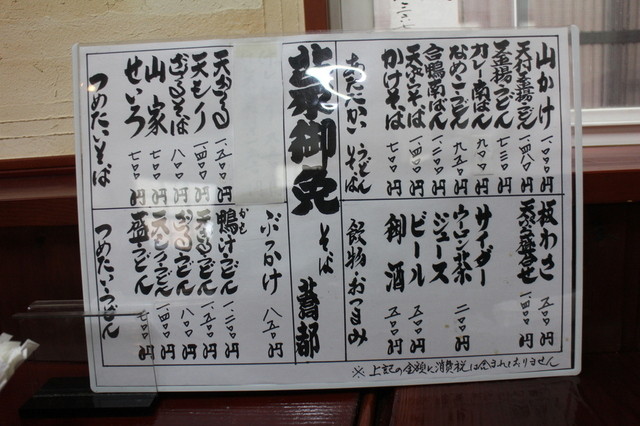 山かけ 一、〇〇〇円
天付釜揚うどん 一、四八〇円
釜揚うどん 七三〇円
カレー南ばん 九〇〇円
なめこうどん 九五〇円
合鴨南ばん 一、二〇〇円
天ぷらそば 一、四〇〇円
かけそば 七〇〇円
あたたかい うどん そば
板わさ 五〇〇円
天ぷら盛合せ 円
サイダー
ウーロン茶 二〇〇円
ジュース
ビール 五〇〇円
御酒 五〇〇円
飲物・おつまみ
御免 そば 蕎都
天ざる 一、五〇〇円
天もり 一、四〇〇円
ざるそば 八〇〇円
山家 七〇〇円
せいろ 七〇〇円
つめたいそば
ぶっかけ 八五〇円
鴨汁うどん 一、二〇〇円
かも
天ざるうどん 一、五〇〇円
ざるうどん 八〇〇円
天もりうどん 一、四〇〇円
盛うどん 七〇〇円
つめたいうどん
※上記の金額に消費税は含まれておりません